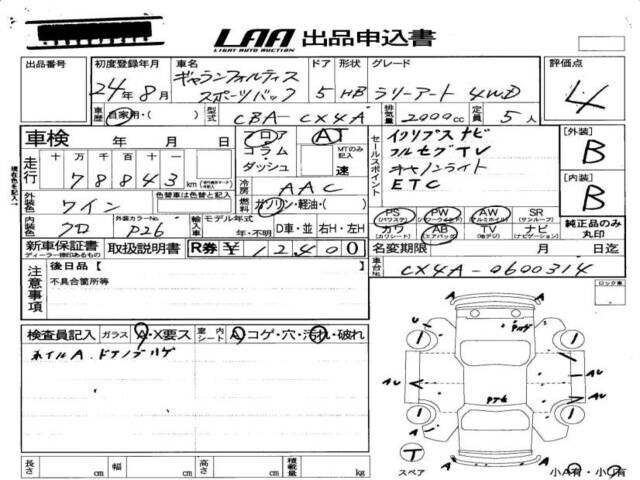 LAA 出品申込書
LIGHT AUTO AUCTION
出品番号
初度登録年月
24年8月
車名
ギャランフォルティス
スポーツバック
ドア
5
形状
HB
グレード
ラリーアート 4WD
評価点
4
車歴
自家用・( )
型式
CBA-CX4A
排気量
2000cc
定員
5人
車検 年 月 日
フロア
コラム
ダッシュ
AT
MTのみ記入
速
セールスポイント
イクリプスナビ
フルセグTV
オキセノンライト
ETC
[外装]
B
[内装]
B
現在色を記入
走行
十万千百十
78843km
冷房
AAC
外装色
車色替は色替と記入
ワイン
燃料
ガソリン・軽油・( )
内装色
クロ
外装カラーNo.
P26
輸入車
モデル年式
年・不明
D車・並
右H・左H
PS
(パワステ)
PW
(パワーウインド)
AW
(アルミホイル)
SR
(サンルーフ)
カワ
(カワシート)
AB
(エアバッグ)
TV
(地デジ)
ナビ
(ナビゲーション)
純正品のみ
丸印
新車保証書
ディーラー捺印あるもの
取扱説明書
R券 ¥12,400
名変期限 月 日迄
車台No.
CX4A-0600314
注意事項
後日品[ ]
不具合箇所等
ロック車
検査員記入
ガラス
A・X要ス
室内シート
コゲ・穴・汚れ・破れ
ホイルA. ドアノブハゲ
AU
AU
T
スペア
長さ cm
幅 cm
高さ cm
積載量 kg
小A有・小U有